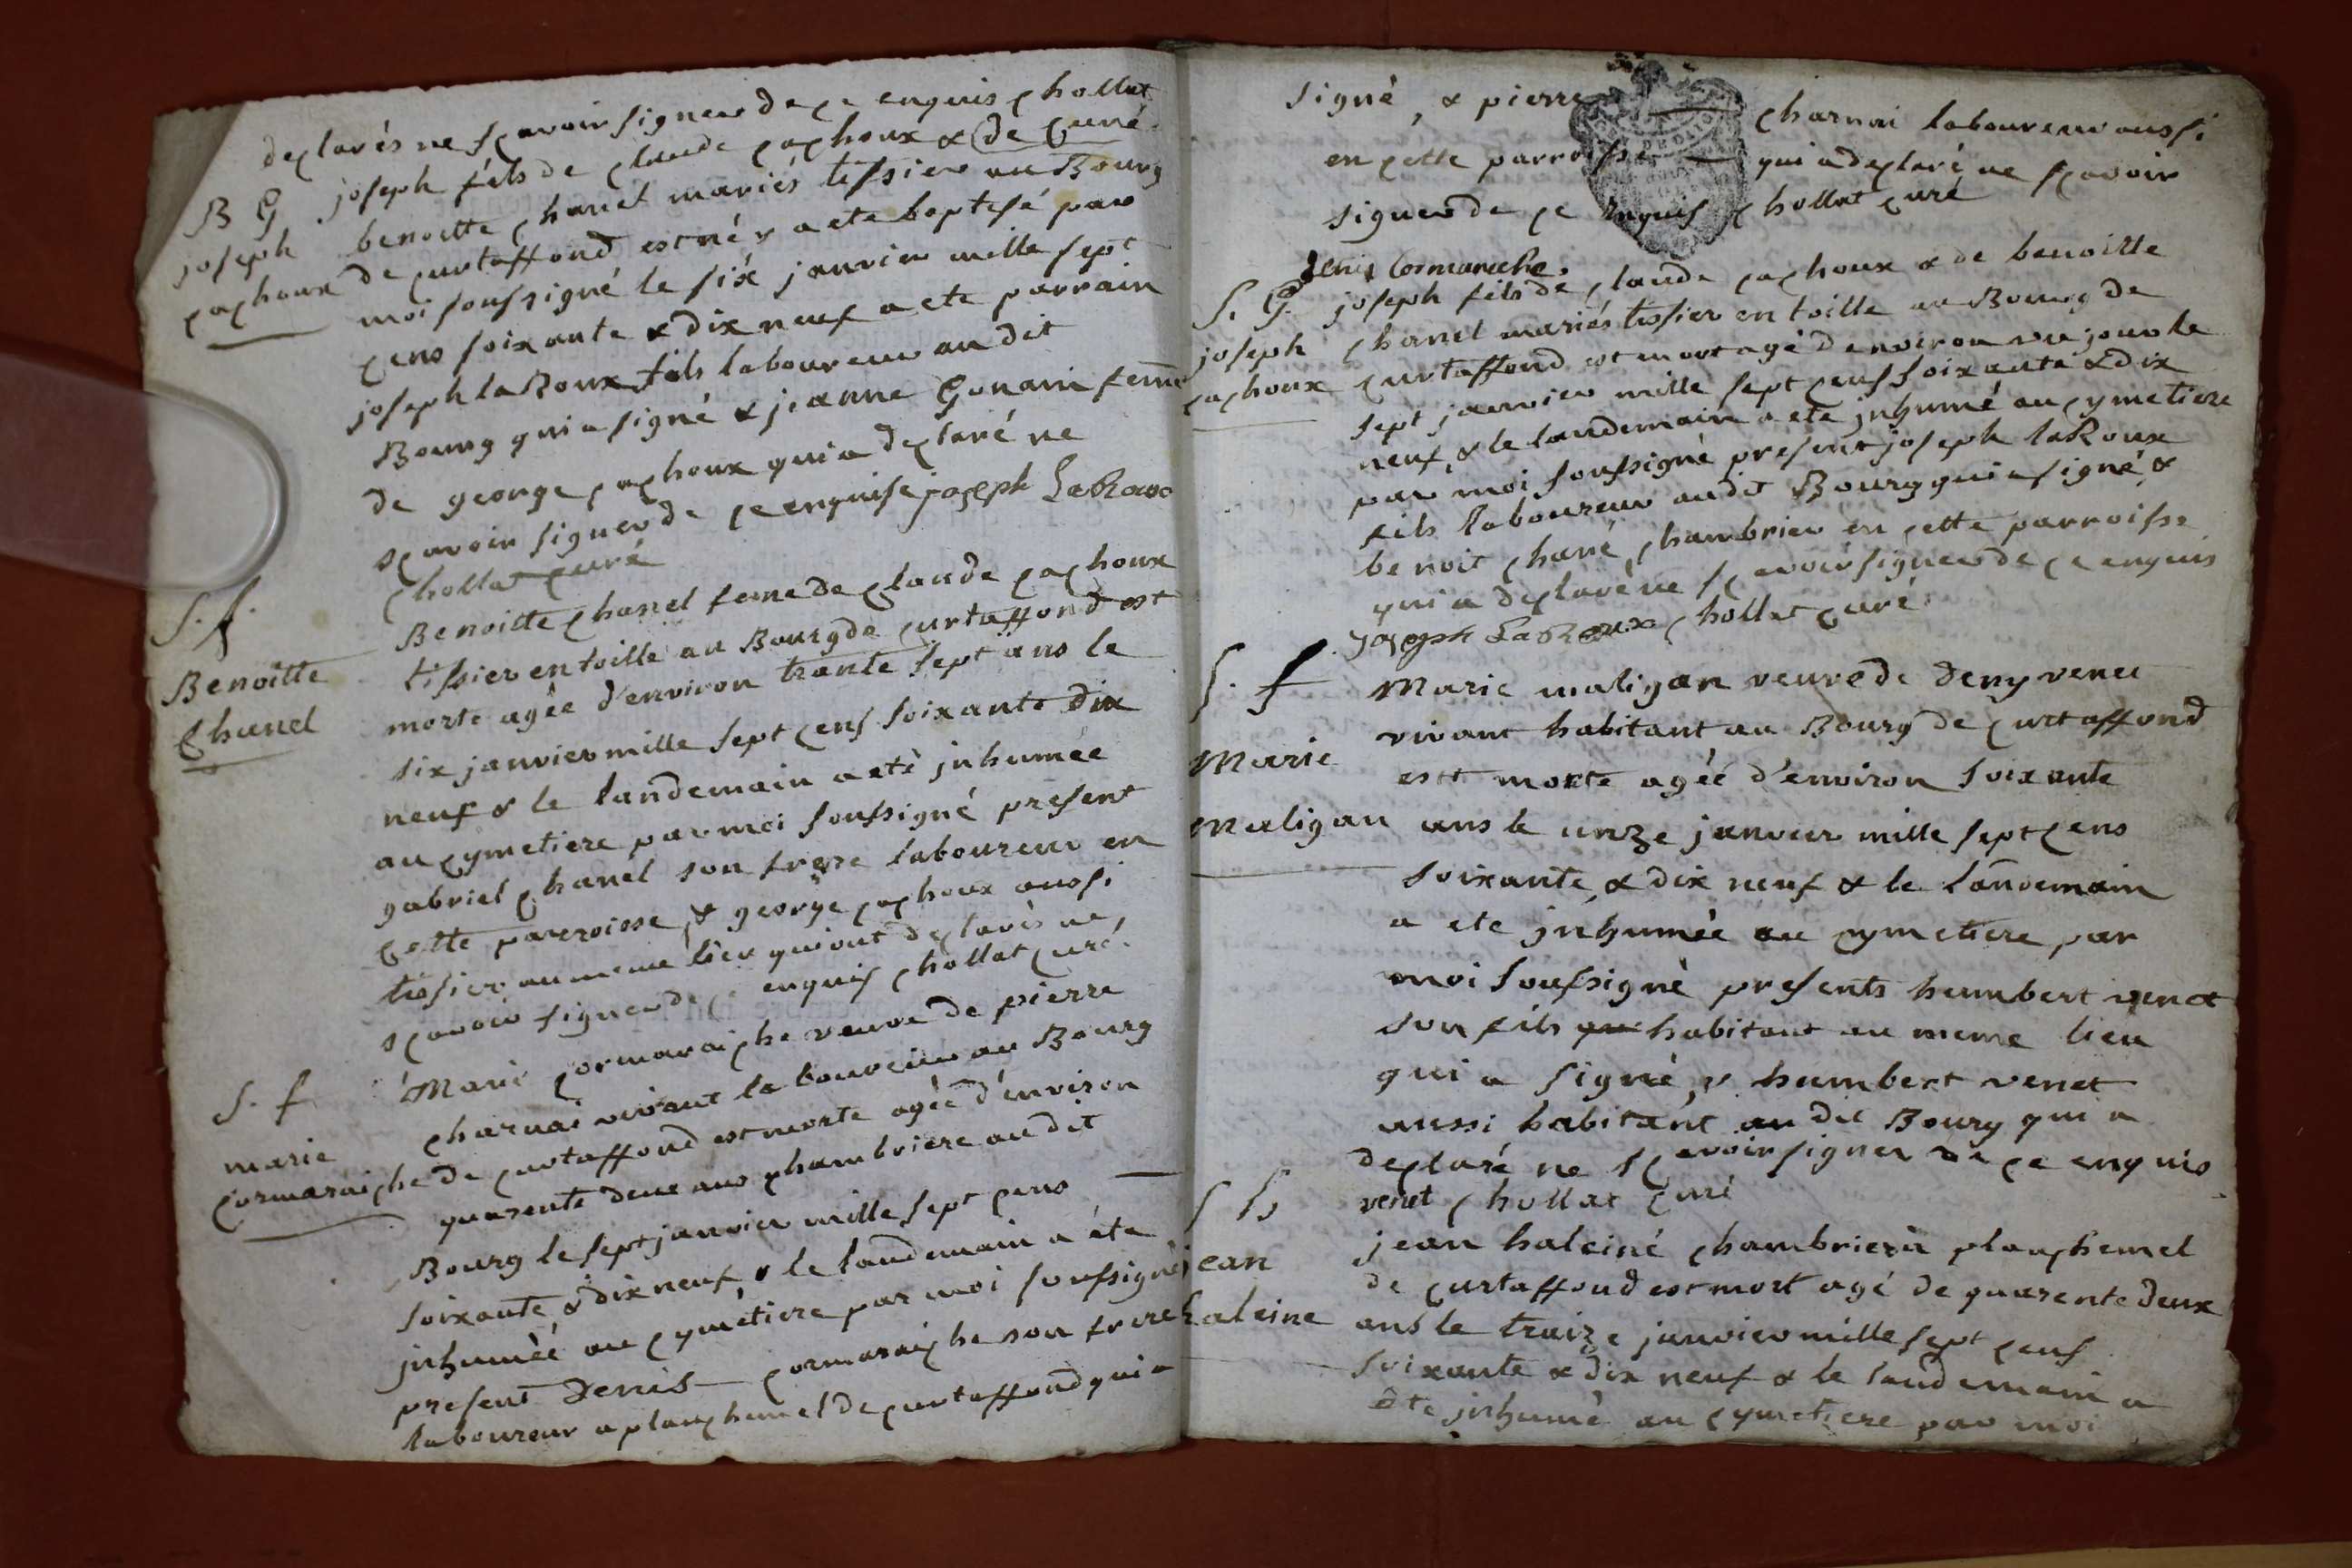 declarés ne sçavoir signer de ce enquis chollat
B G joseph fils de claude cachoux & de curé
joseph benoitte chanel mariés tissier au Bourg
cachoux de curtaffond est né & a ete baptisé par
moi soussigné le six janvier mille sept
cens soixante & dix neuf a ete parrain
joseph laRoux fils laboureur au dit
Bourg qui a signé & jeanne Gonain feme
de george cachoux qui a declaré ne
sçavoir signer de ce enquise joseph LaRoux
chollat curé
S. f. Benoitte chanel feme de claude cachoux
Benoitte tissier en toille au Bourg de curtaffond est
Chanel morte agée d'environ trante sept ans le
six janvier mille sept cens soixante dix
neuf & le landemain a eté jnhumée
au cymetiere par moi soussigné present
gabriel chanel son frere laboureur en
cette parroisse & george cachoux aussi
tissier au meme lieu qui ont declarés ne
sçavoir signer de ce enquis chollat curé
S. f Marie cormaraiche veuve de pierre
marie charnai vivant laboureur au Bourg
cormaraiche de curtaffond est morte agée d'environ
quarente deux ans chambriere au dit
Bourg le sept janvier mille sept cens
soixante & dix neuf & le landemain a été
jnhumée au cymetiere par moi soussigné
present Denis cormaraiche son frere
laboureur a planchemel de curtaffond qui a
signé, & pierre charnai laboureur aussi
en cette parroisse qui a declaré ne sçavoir
signer de ce enquis chollat curé
denis Cormareche.
S. G. joseph fils de claude cachoux & de benoitte
joseph chanel mariés tissier en toille au Bourg de
cachoux curtaffond est mort agé d'environ un jour le
sept janvier mille sept cens soixante & dix
neuf, & le landemain a eté jnhumé au cymetiere
par moi soussigné present joseph laRoux
fils laboureur au dit Bourg qui a signé &
benoit chané chambrier en cette parroisse
qui a declaré ne sçavoir signer de ce enquis
joseph LaRoux chollat curé
S. f Marie maligan veuve de Deny venet
vivant habitant au Bourg de curtaffond
Marie est morte agée d'environ soixante
Maligan ans le unze janvier mille sept cens
soixante & dix neuf & le landemain
a ete jnhumée au cymetiere par
moi soussigné presents humbert venet
son fils qui habitant au meme lieu
qui a signé, & humbert venet
aussi habitant au dit Bourg qui a
declaré ne sçavoir signer de ce enquis
venet chollat curé
S h jean haleiné chambrier à planchemel
jean de curtaffond est mort agé de quarente deux
haleine ans le traize janvier mille sept cens
soixante & dix neuf & le landemain a
été jnhumé au cymetiere par moi